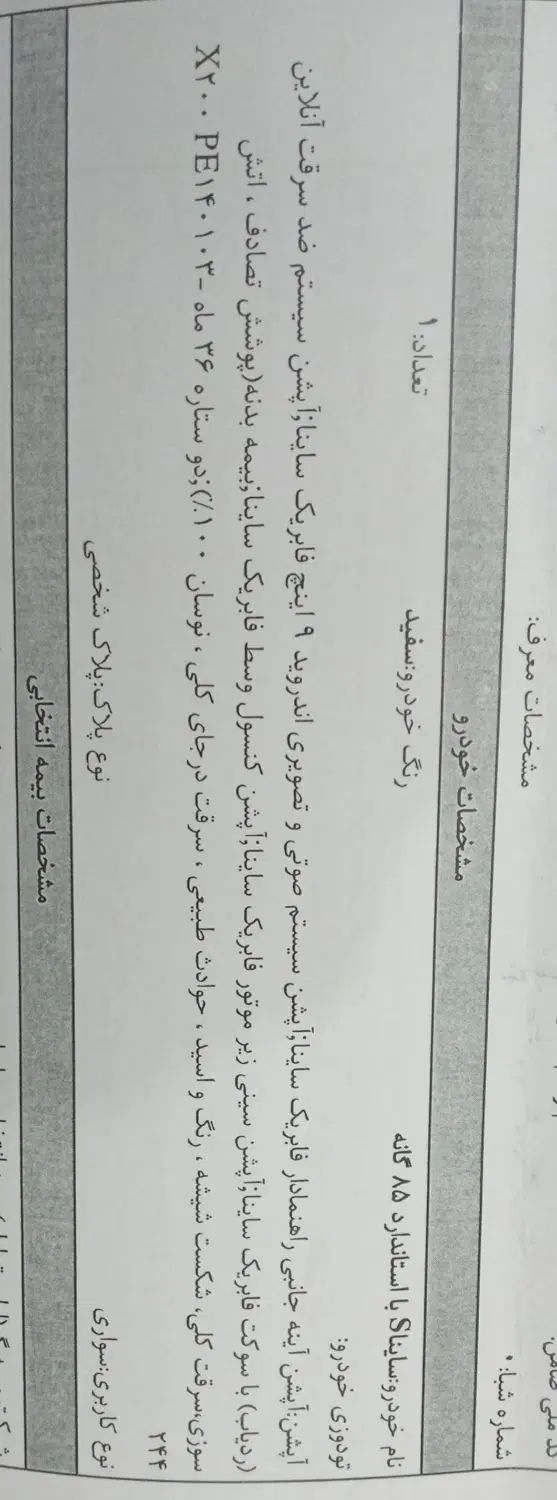 شماره شبا: ۰
مشخصات معرف:
مشخصات خودرو
نام خودرو:سایناS با استاندارد ۸۵ گانه رنگ خودرو:سفید تعداد: ۱
تودوزی خودرو:
آپشن:آپشن آینه جانبی راهنمادار فابریک ساینا;آپشن سیستم صوتی و تصویری اندروید ۹ اینچ فابریک ساینا;آپشن سیستم ضد سرقت آنلاین
(ردیاب) با سوکت فابریک ساینا;آپشن سینی زیر موتور فابریک ساینا;آپشن کنسول وسط فابریک ساینا;بیمه بدنه(پوشش تصادف ، اتش
سوزی،سرقت کلی، شکست شیشه ، رنگ و اسید ، حوادث طبیعی ، سرقت درجای کلی ، نوسان ۱۰۰٪);دو ستاره ۳۶ ماه -X۲۰۰ PE۱۴۰۱۰۳
۲۴۴
نوع کاربری:سواری نوع پلاک:پلاک شخصی
مشخصات بیمه انتخابی